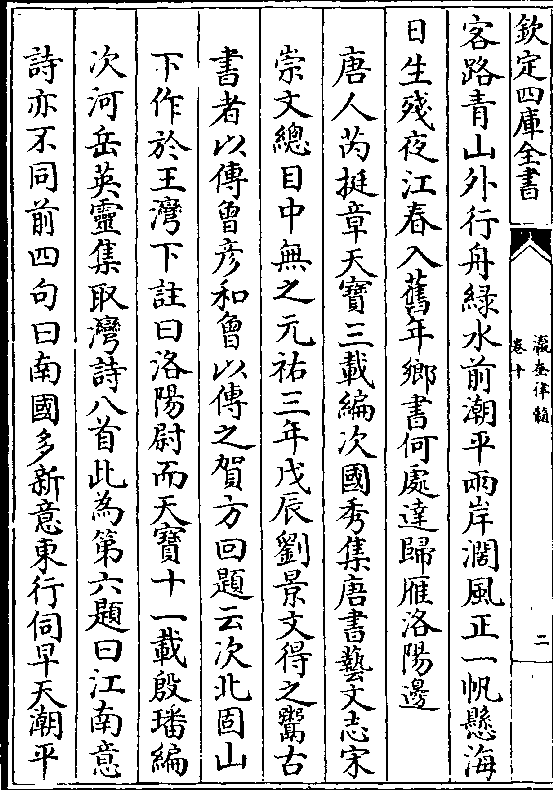 欽定四庫全書
瀛奎律髓
卷十
二
客路青山外行舟綠水前潮平兩岸濶風正一帆懸海
日生殘夜江春入舊年鄉書何處達歸雁洛陽邊
唐人芮挺章天寶三載編次國秀集唐書藝文志宋
崇文總目中無之元祐三年戊辰劉景文得之鬻古
書者以傳曾彥和曾以傳之賀方回題云次北固山
下作於王灣下註曰洛陽尉而天寶十一載殷璠編
次河岳英靈集取灣詩八首此為第六題曰江南意
詩亦不同前四句曰南國多新意東行伺早天潮平